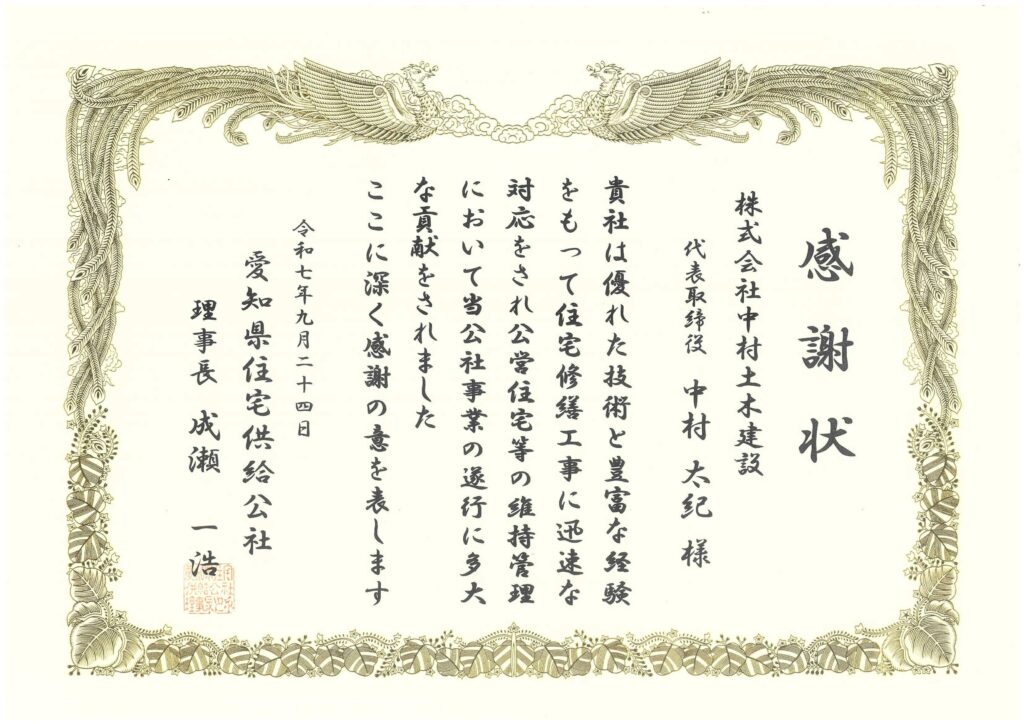 感謝状
株式会社中村土木建設
代表取締役 中村 太紀 様
貴社は優れた技術と豊富な経験
をもって住宅修繕工事に迅速な
対応をされ公営住宅等の維持管理
において当公社事業の遂行に多大
な貢献をされました
ここに深く感謝の意を表します
令和七年九月二十四日
愛知県住宅供給公社
理事長 成瀬 一浩